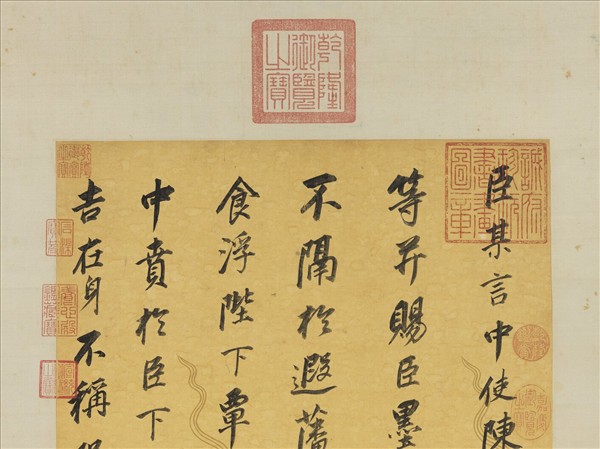 乾隆
御覽
之寶
臣某言中使陳
等并賜臣墨
不隔於遐藩
食浮陛下覃
中賁於臣下
吉在身不稱